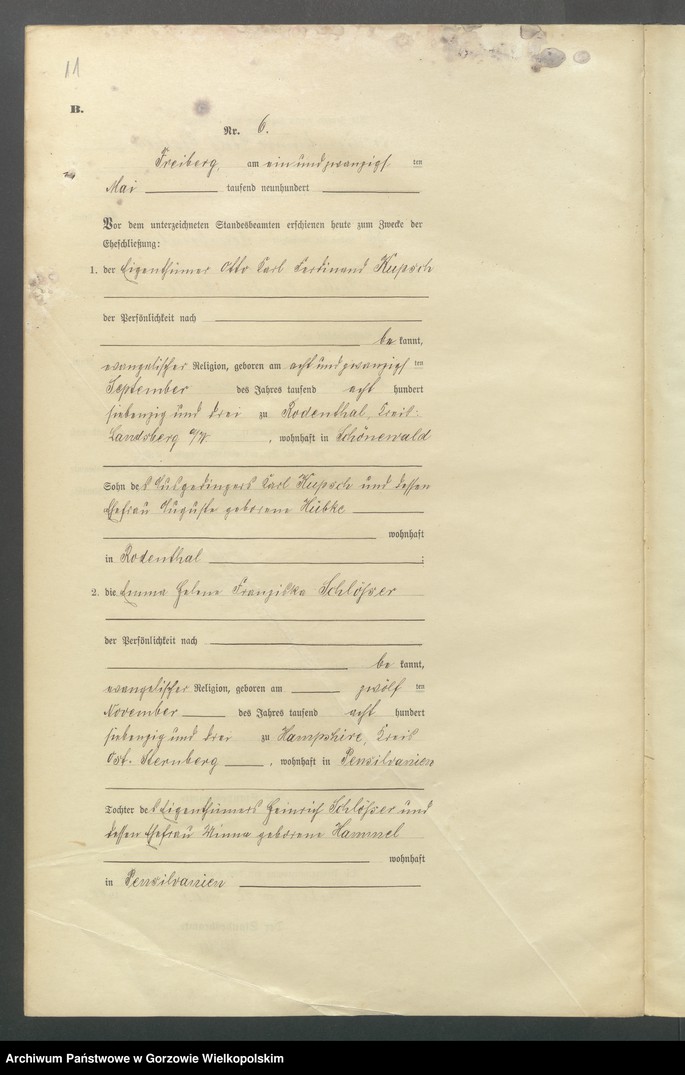 11
B.
Nr. 6.
Freiberg, am ein und zwanzigsten
Mai tausend neunhundert
Vor dem unterzeichneten Standesbeamten erschienen heute zum Zwecke der
Eheschließung:
1. der Eigenthümer Otto Carl Ferdinand Kupsch
der Persönlichkeit nach
be kannt,
evangelischer Religion, geboren am acht und zwanzigsten
September des Jahres tausend acht hundert
siebenzig und drei zu Rodenthal, Kreis
Landsberg a/W, wohnhaft in Schönewald
Sohn des Ausgedingers Carl Kupsch und dessen
Ehefrau Auguste geborene Hübke
wohnhaft
in Rodenthal ;
2. die Emma Helene Franziska Schlößer
der Persönlichkeit nach
be kannt,
evangelischer Religion, geboren am zwölf ten
November des Jahres tausend acht hundert
siebenzig und drei zu Hampshire, Kreis
Ost-Sternberg, wohnhaft in Pensilvanien
Tochter des Eigenthümers Heinrich Schlößer und
dessen Ehefrau Minna geborene Hammel
wohnhaft
in Pensilvanien
Archiwum Państwowe w Gorzowie Wielkopolskim